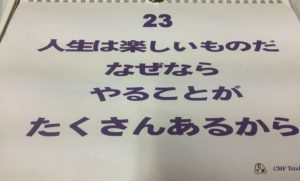 23
人生は楽しいものだ
なぜなら
やることが
たくさんあるから
CMF Total